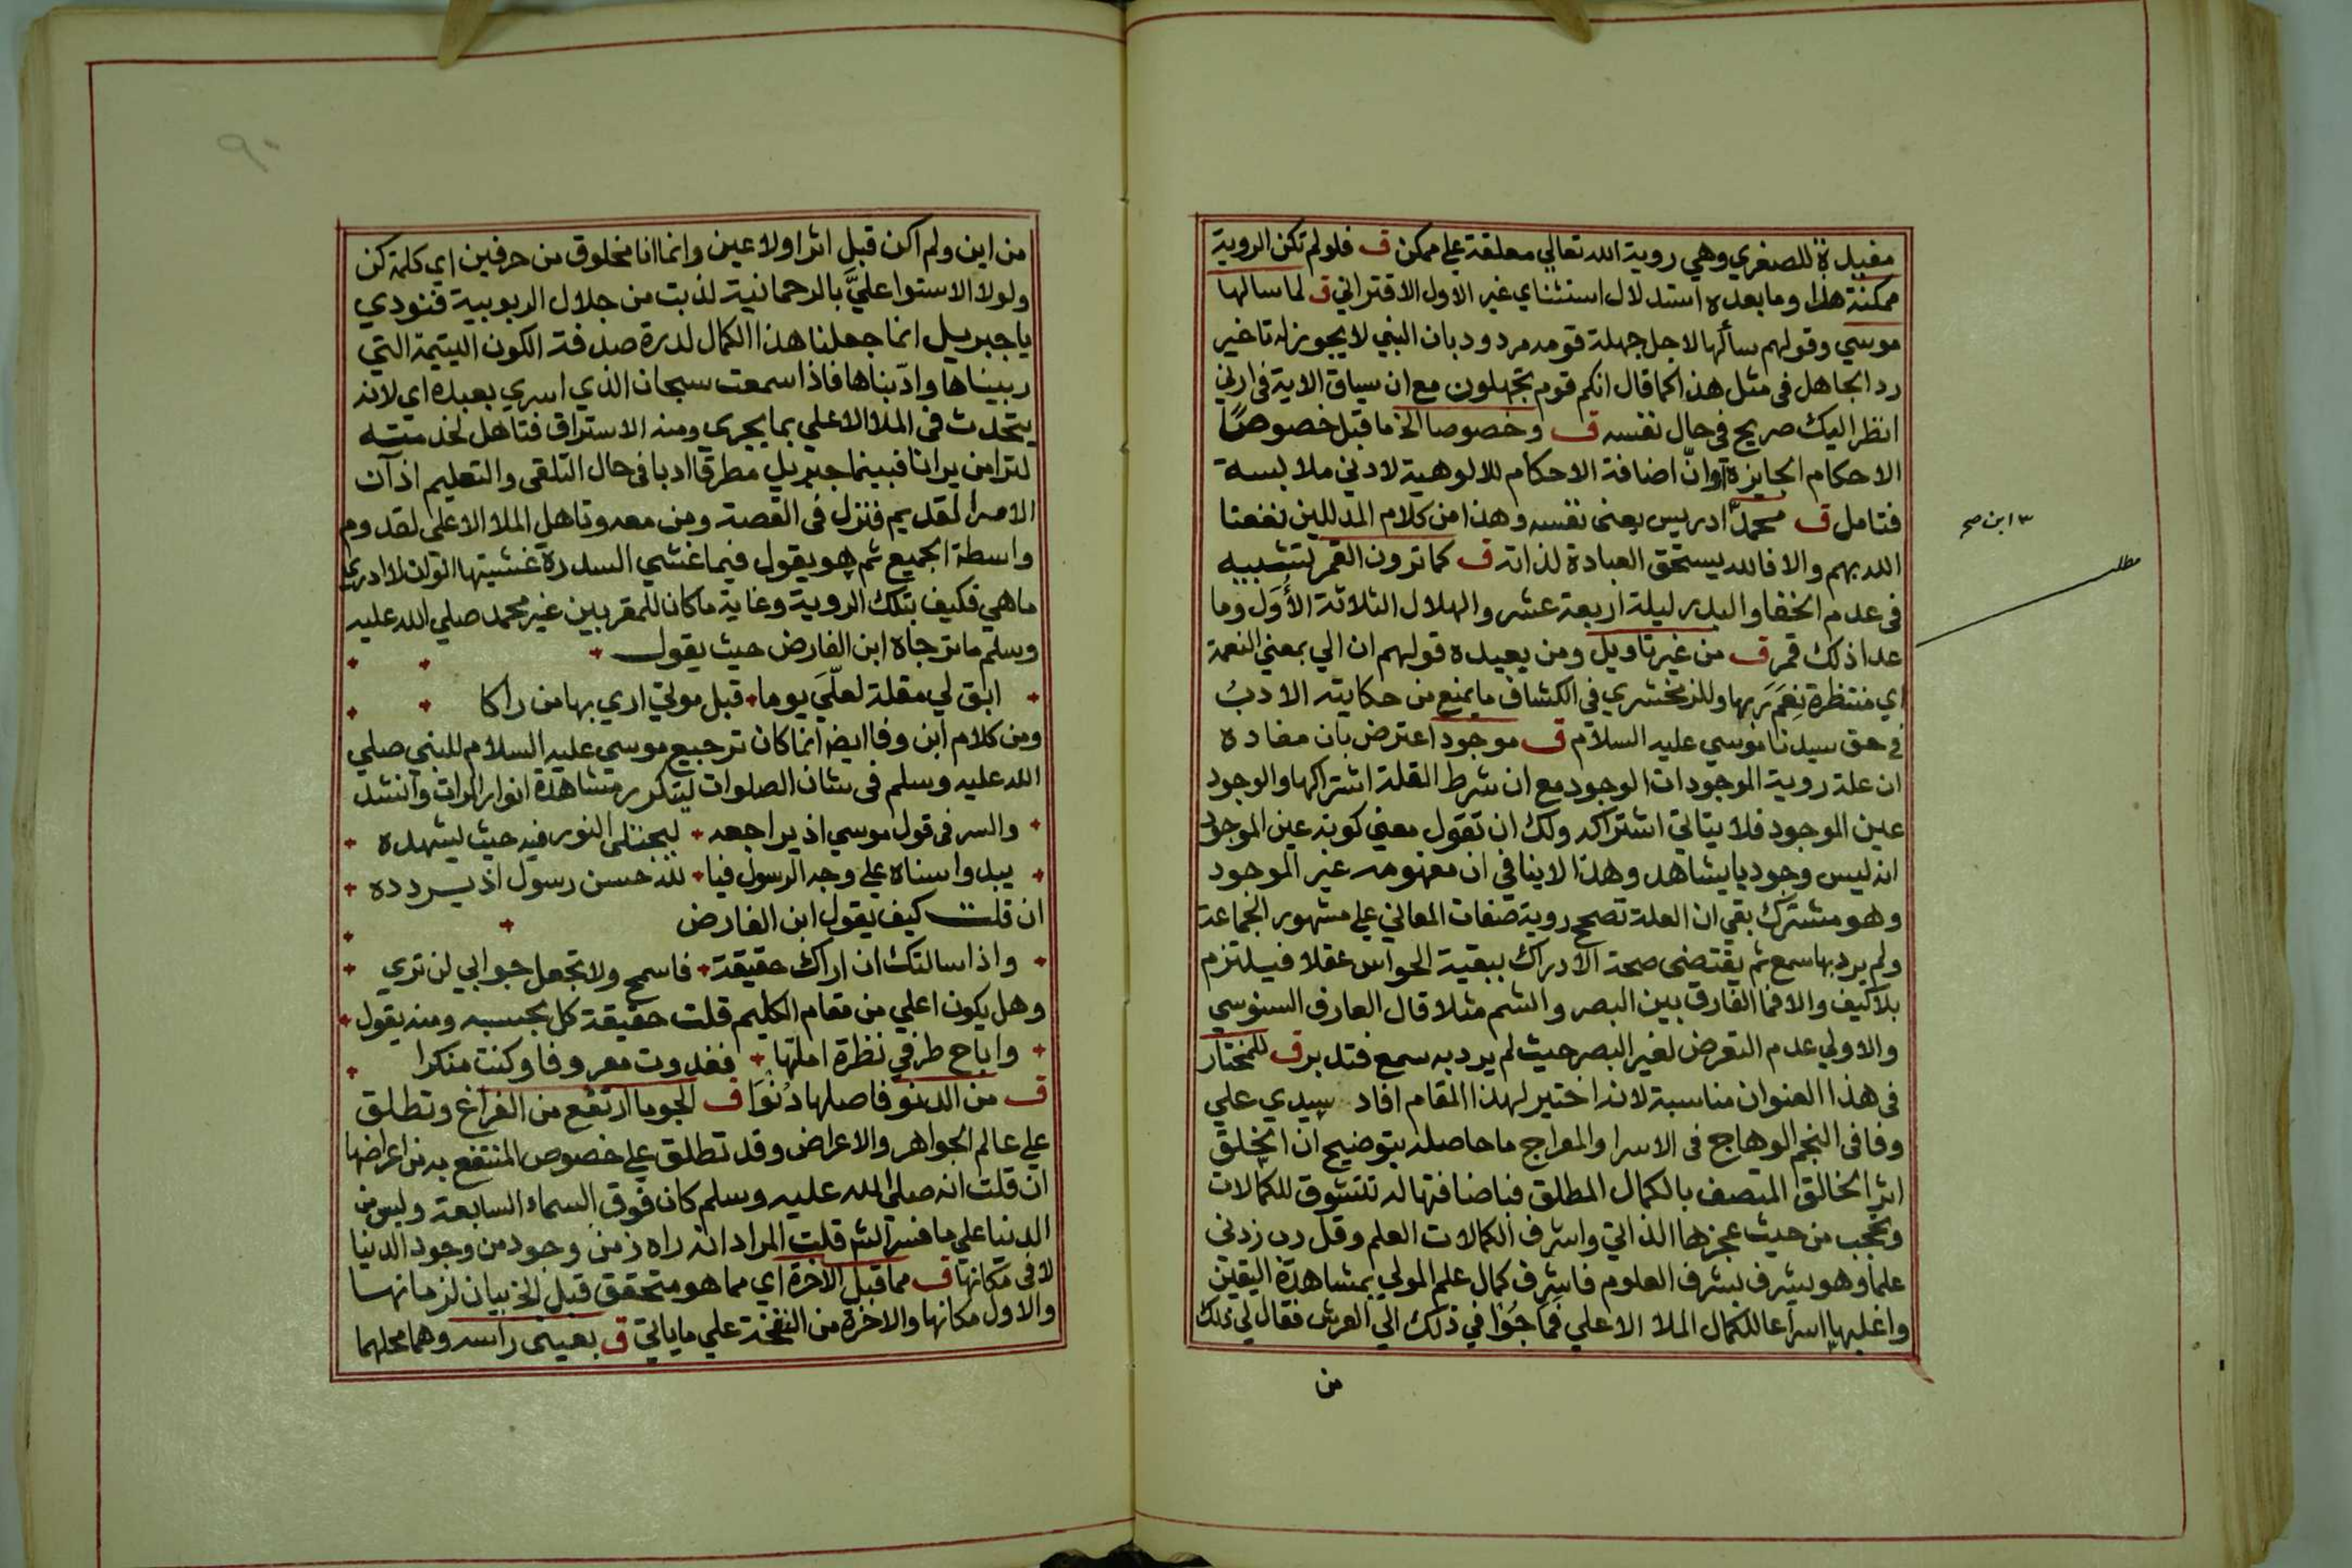 مفيدة للصغري وهي روية الله تعالي معلقة علي ممكن ق فلو لم تكن الروية
ممكنة هذا وما بعده استدلال استثناي غير الاول الاقتراني ق لما سالها
موسي وقولهم سألها لاجل جهلة قومه مردود بان النبي لا يجوز له تاخير
رد الجاهل في مثل هذا كما قال انكم قوم تجهلون مع ان سياق الاية في ارني
انظر اليك صريح في حال نفسه ق وخصوصا الخ ما قبل خصوصًا
الاحكام الجايزة وانّ اضافة الاحكام للالوهية لادني ملابسة
فتامل ق محمد ادريس يعني نفسه وهذا من كلام المدللين نفعنا
٣ ابن صح
الله بهم والا فالله يستحق العبادة لذاته ق كما ترون القمر تشبيه
مطلب
في عدم الخفا والبدر ليلة اربعة عشر والهلال الثلاثة الأُوَل وما
عدا ذلك قمر ق من غير تاويل ومن بعيده قولهم ان الي بمعني النعمة
اي منتظرة نِعَمَ ربها وللزمخشري في الكشاف ما يمنع من حكايته الادبُ
في حق سيدنا موسي عليه السلام ق موجود اعترض بان مفاده
ان علة روية الموجودات الوجود مع ان شرط العلة اشتراكها والوجود
عين الموجود فلا يتاتي اشتراكه ولك ان تقول معني كونه عين الموجود
انه ليس وجوديا يشاهد وهذا لا ينافي ان مفهومه غير الموجود
وهو مشترك بقي ان العلة تصحح روية صفات المعاني علي مشهور الجماعة
ولم يرد بها سمع ثم يقتضي صحة الادراك ببقية الحواس عقلا فيلتزم
بلا كيف والا فما الفارق بين البصر والشم مثلا قال العارف السنوسي
والاولي عدم التعرض لغير البصر حيث لم يرد به سمع فتدبر ق للمختار
في هذا العنوان مناسبة لانه اختير لهذا المقام افاد سيدي علي
وفا في النجم الوهاج في الاسرا والمعراج ما حاصله بتوضيح ان الخلق
اثر الخالق المتصف بالكمال المطلق فباضافتها له تتشوق للكمالات
وتحجب من حيث عجزها الذاتي واشرف الكمالات العلم وقل رب زدني
علما وهو يشرف بشرف العلوم فاشرف كمال علم المولي بمشاهدة اليقين
واغلبها اسراعا للكمال الملا الاعلي فماجُوا في ذلك الي العرش فقال لي ذلك
من
٩٠
من اين ولم اكن قبل اثرا ولا عين وانما انا مخلوق من حرفين اي كلمة كن
ولولا الاستوا عليَّ بالرحمانية لذبت من جلال الربوبية فنودي
يا جبريل انما جعلنا هذا الكمال لدرة صدفة الكون اليتيمة التي
ربيناها وادّبناها فاذا سمعت سبحان الذي اسري بعبده اي لانه
يتحدث في الملا الاعلي بما يجري ومنه الاستراق فتاهل لخدمته
لترا من يرانا فبينما جبريل مطرقا ادبا في حال التلقي والتعليم اذ آن
الامر القديم فنزل في القصة ومن معه وتاهل الملا الاعلي لقدوم
واسطة الجميع ثم هو يقول فيما غشي السدرة غشيتها الوان لا ادري
ما هي فكيف بتلك الروية وغاية ما كان للمقربين غير محمد صلي الله عليه
وسلم ما ترجاه ابن الفارض حيث يقول
ابق لي مقلة لعلّيَ يوما قبل موتي اري بها من راكا
ومن كلام ابن وفا ايضا انما كان ترجيع موسي عليه السلام للنبي صلي
الله عليه وسلم في شان الصلوات ليتكرر مشاهدة انوار المرات وانشد
والسر في قول موسي اذ يراجعه ليجتلي النور فيه حيث يشهده
يبدو اسناه علي وجه الرسول فيا لله حسن رسول اذ يردده
ان قلت كيف يقول ابن الفارض
واذا سالتك ان اراك حقيقة فاسمح ولا تجعل جوابي لن تري
وهل يكون اعلي من مقام الكليم قلت حقيقة كل بحسبه ومنه يقول
واباح طرفي نظرة املتها فغدوت معروفا وكنت منكرا
ق من الدنو فاصلها دُنْوَا ق الجو ما ارتفع من الفراغ وتطلق
علي عالم الجواهر والاعراض وقد تطلق علي خصوص المنتفع به من اعراضها
ان قلت انه صلي الله عليه وسلم كان فوق السماء السابعة وليس من
الدنيا علي ما فسر الشم قلت المراد انه راه زمن وجود من وجود الدنيا
لا في مكانها ق مما قبل الاخرة اي مما هو متحقق قبل الخ بيان لزمانها
والاول مكانها والاخرة من النفخة علي ما ياتي ق بعيني راسه وهما محلهما